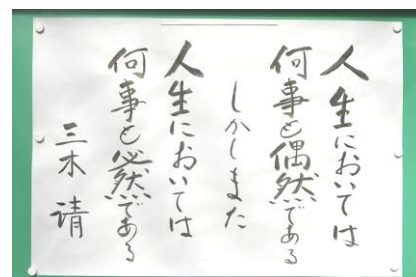 人生においては
何事も偶然である
しかしまた
人生においては
何事も必然である
三木 請